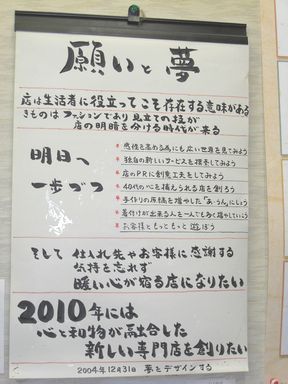 願いと夢
店は生活者に役立ってこそ存在する意味がある
きものはファッションであり見立ての技が
店の明暗を分ける時代が来る
明日へ
一歩づつ
感性を高める為にも広い世界を見てみよう
独自の新しいサービスを探求してみよう
店のPRに創意工夫をしてみよう
40代の心を捕えられる店を創ろう
手作りの原稿を増やした「あ・うん」にしよう
着付けが出来る人を一人でも多く増やしていこう
お客様ともっともっと遊ぼう
そして 仕入れ先やお客様に感謝する
気持を忘れず
暖い心が宿る店になりたい
2010年には
心と和物が融合した
新しい専門店を創りたい
2004年12月31日 夢をデザインする